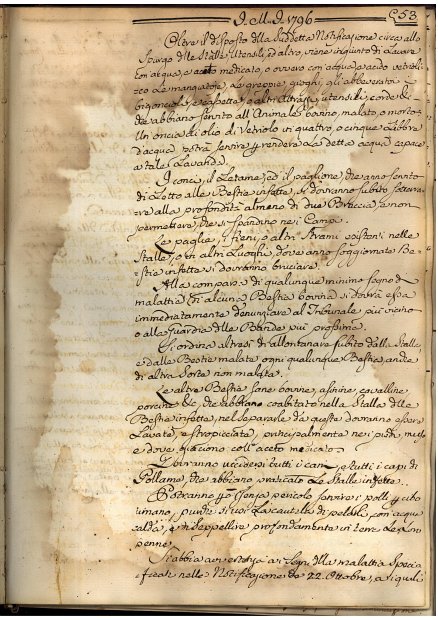 J. M. J. 1796
C53
Oltre il disposto della suddetta Notificazione circa allo
Spurgo delle Stalle, Utensili, ed altro, viene ingiunto di Lavare
con acqua, e medicato, o ovvero con acqua, e acido vetrioli-
co Le mangiatoje, Le greppie, gioghi, gli abbeveratoj
bigonciole, e cassette, o altri Attrassi, utensili, corde &c
che abbiano servito all'Animale bovino, malato, o morto.
Un'oncia di olio di Vetriolo in quattro, o cinque Libbre
d'acqua potrà servire, e rendere La detta acqua capace
a tale Lavanda.
I conci, il Letame, ed il paglione, che anno servito
di Letto alle Bestie infette, si dovranno subito sotterra-
re alla profondità almeno di due Braccia, e non
permettere, che si spandino nei Campi.
Le paglie, i fieni, o altri Strami esistenti nelle
Stalle, o in altri Luoghi dove anno soggiornato Be-
stie infette si dovranno bruciare.
Alla comparsa di qualunque minimo segno di
malattia di alcuna Bestia bovina si dovrà essa
immediatamente denunziare al Tribunale più vicino
o alla Guardia delle Bande più prossima.
Si ordina altresì di allontanare subito dalle Stalle,
e dalle Bestie malate ogni qualunque Bestia, anche
di altra Sorte non malata.
Le altre Bestie sane bovine, asinine, cavalline
porcine &c, che abbiano coabitato nella Stalla delle
Bestie infette, nel separarle da queste dovranno essere
Lavate, e stropicciate, principalmente nei piedi,
e dove giaciono coll'aceto medicato.
Dovranno uccidersi tutti i cani, e tutti i capi di
Pollame che abbiano praticato Le Stalle infette.
Potranno però senza pericolo servire i polli per cibo
umano, purché si usi La cautela di pelarli con acqua
calda, e di seppellire profondamente in terra Le Loro
penne.
Si abbia avvertenza ai segni della malattia specia
ficati nella Notificazione de 22. Ottobre, ai quali